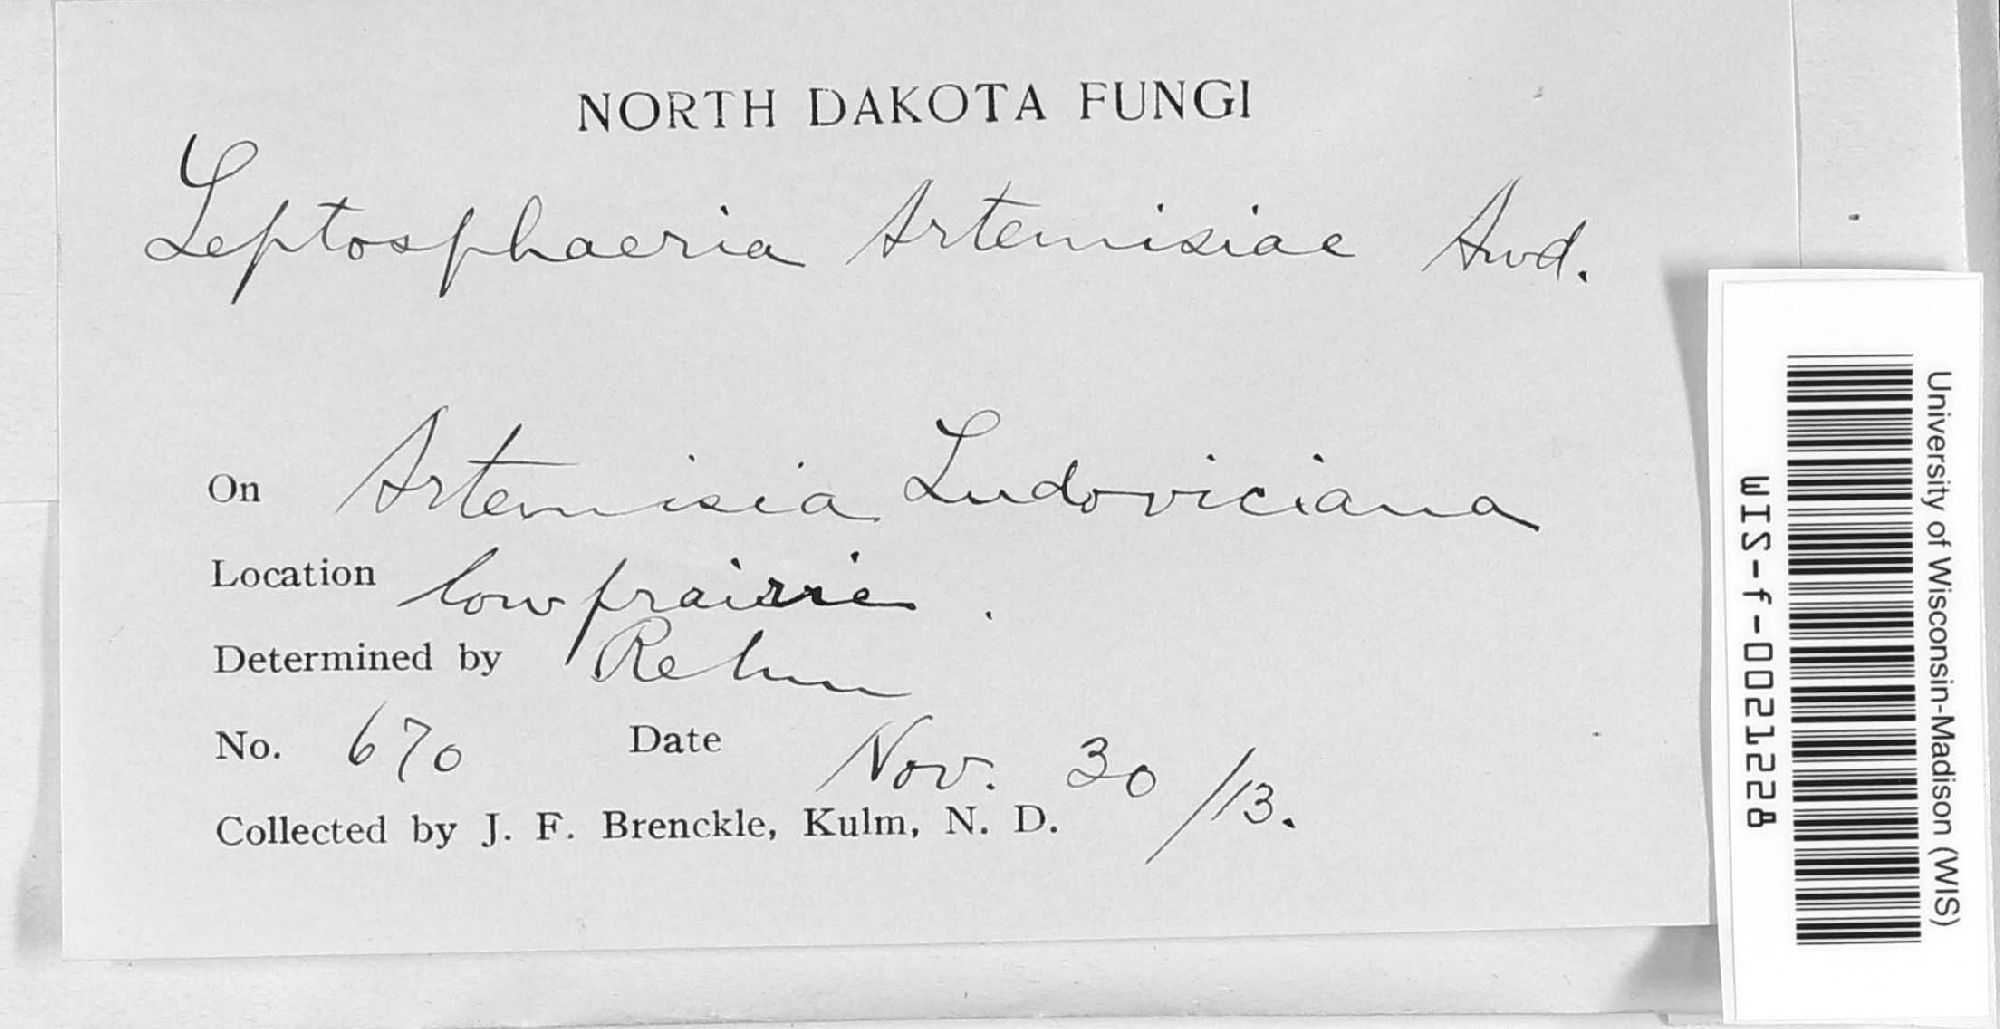 NORTH DAKOTA FUNGI
Leptosphaeria Artemisiae Awd.
On Artemisia Ludoviciana
Location low prairie.
Determined by Rehm
No. 670 Date Nov. 30/13.
Collected by J. F. Brenckle, Kulm, N. D.
University of Wisconsin-Madison (WIS)
WIS-f-0021228